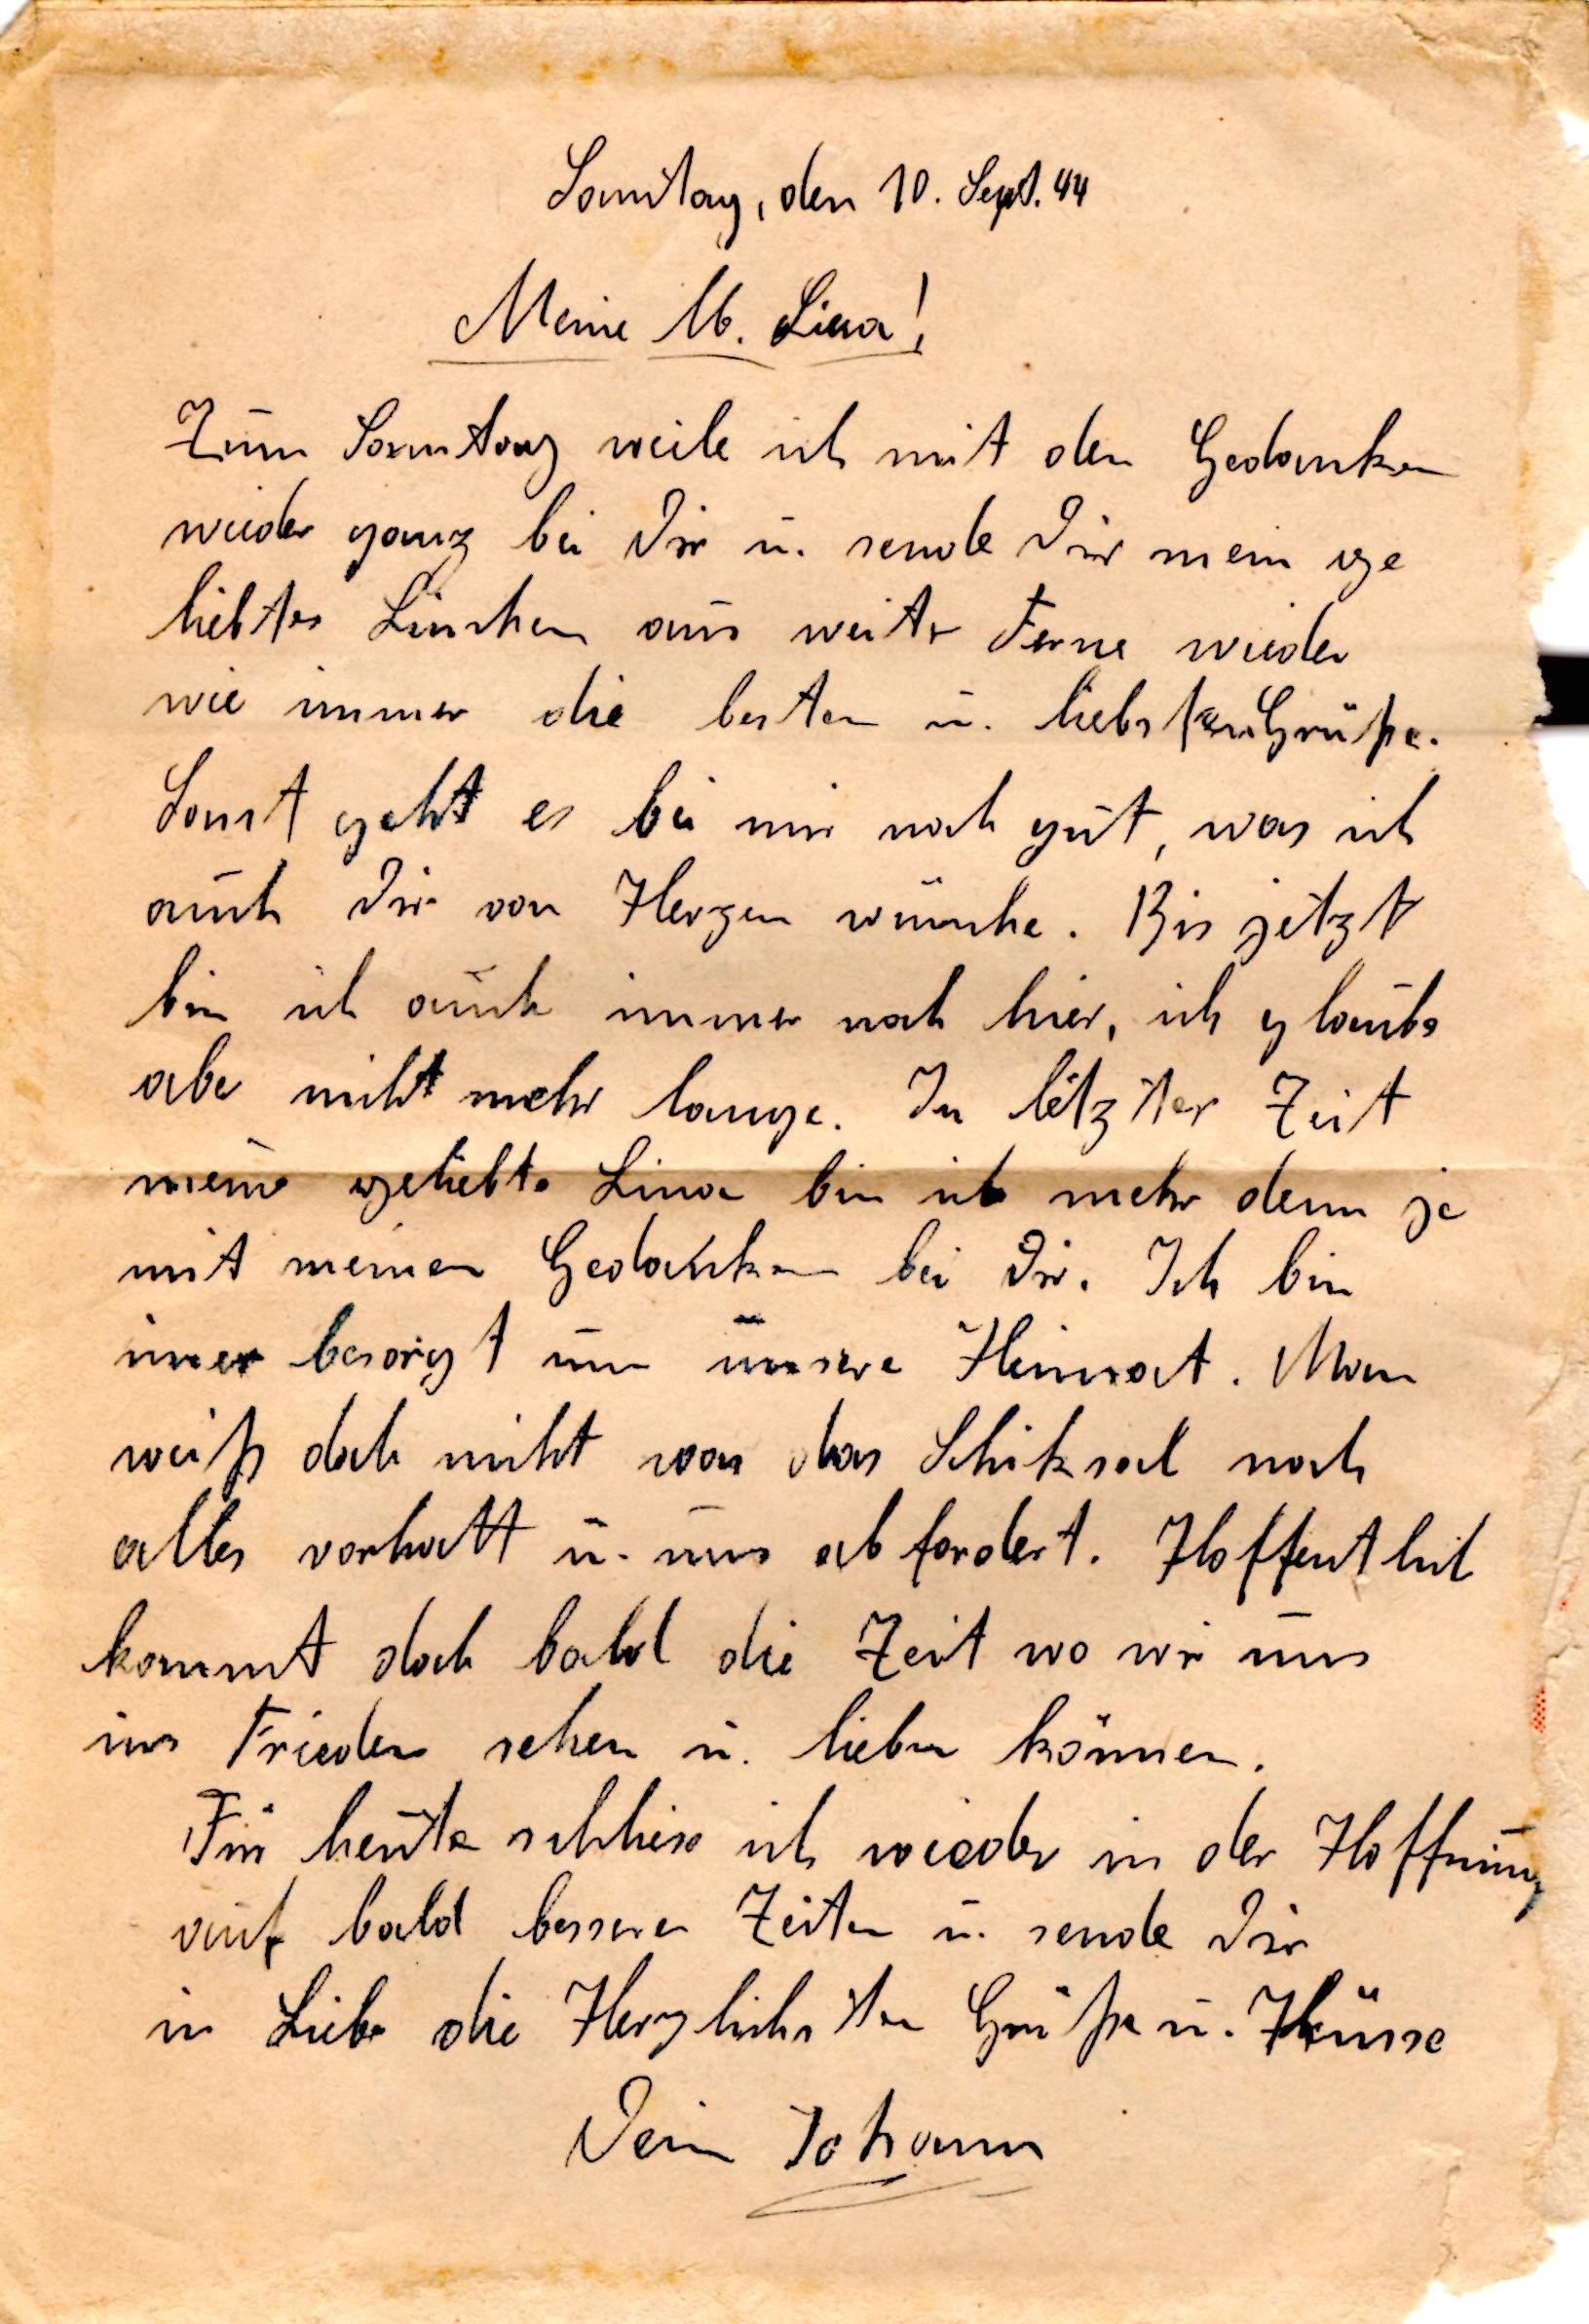 Sonntag, den 10. Sept. 44
Meine lb. Lina!
Zum Sonntag weile ich mit den Gedanken
wieder ganz bei Dir u. sende Dir mein ge
liebtes Linchen aus weiter Ferne wieder
wie immer die besten u. liebsten Grüße.
Sonst geht es bei mir noch gut, was ich
auch Dir von Herzen wünsche. Bis jetzt
bin ich auch immer noch hier, ich glaube
aber nicht mehr lange. In letzter Zeit
meine geliebte Lina bin ich mehr denn je
mit meinen Gedanken bei Dir. Ich bin
imer besorgt um unsere Heimat. Man
weiß doch nicht was das Schiksal noch
alles vorhatt u. uns abfordert. Hoffentlich
kommt doch bald die Zeit wo wir uns
ins Frieden sehen u. lieben können.
Für heute schliese ich wieder in der Hoffnung
auf bald bessere Zeiten u. sende Dir
in Liebe die Herzlichsten Grüße u. Küsse
Dein Johann